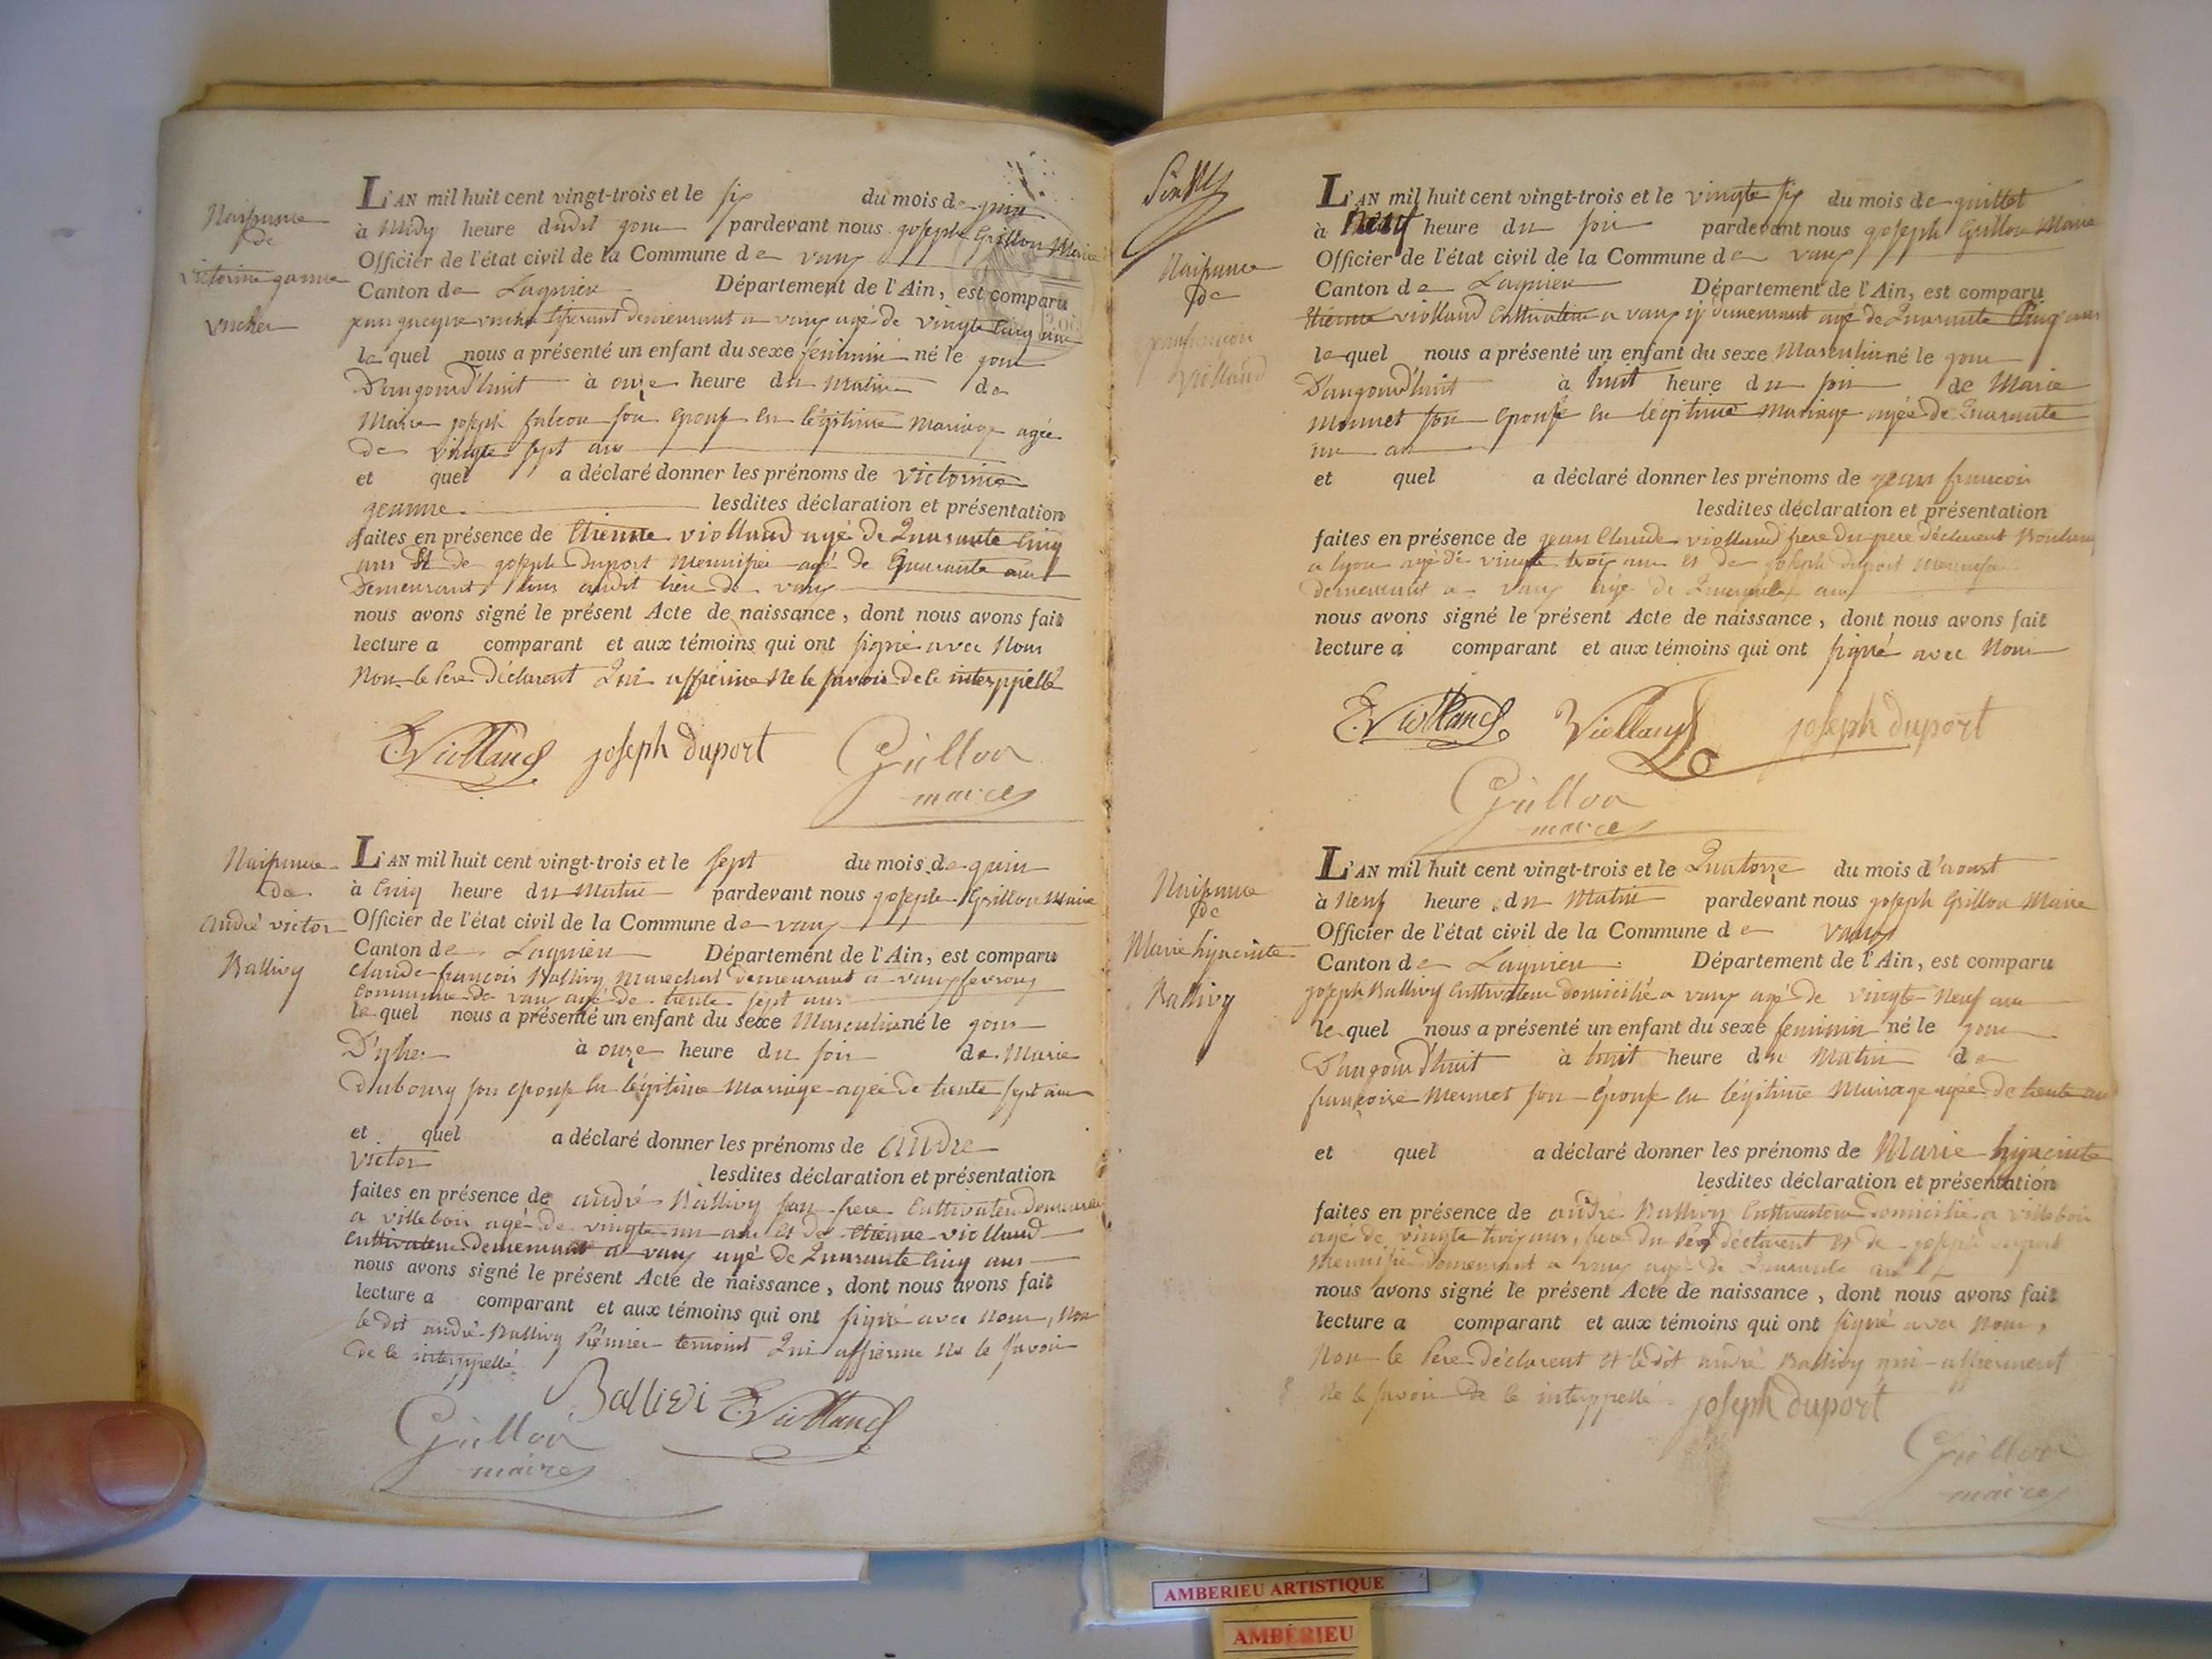 Naissance
de
victorine jeanne
vucher
L'AN mil huit cent vingt-trois et le six du mois de juin
à Midy heure dudit jour pardevant nous joseph Grillon Maire
Officier de l'état civil de la Commune de vaux
Canton de Lagnieu Département de l'Ain, est comparu
jean jacque vucher tisserant demeurant a vaux agé de vingte cinq ans
le quel nous a présenté un enfant du sexe feminin né le jour
D'aujourd'huit à onze heure du matin de
Marie joseph falcon son epouse en légitime Mariage agée
de vingte sept ans
et quel a déclaré donner les prénoms de victorine
jeanne lesdites déclaration et présentation
faites en présence de Etienne violland agé de Quarante cinq
ans Et de joseph duport Menuisier agé de Quarante ans
Demeurant tous audit lieu de vaux
nous avons signé le présent Acte de naissance, dont nous avons fait
lecture a comparant et aux témoins qui ont signé avec Nous
Non le Pere Déclarent Qui affierme Ne le savoir de ce interppellé
E. Violland joseph duport Grillon
maire
Naissance
de
André victor
Ballivy
L'AN mil huit cent vingt-trois et le sept du mois de juin
à Cinq heure du Matin pardevant nous joseph Grillon Maire
Officier de l'état civil de la Commune de vaux
Canton de Lagnieu Département de l'Ain, est comparu
Claude françois Ballivy Marechal demeurant a vaux fevroux
Commune de vaux agé de trente sept ans
le quel nous a présenté un enfant du sexe Masculin né le jour
D'yher à onze heure du soir de Marie
dubourg son epouse en légitime Mariage agée de trente sept ans
et quel a déclaré donner les prénoms de André
victor lesdites déclaration et présentation
faites en présence de andré Ballivy son frere Cultivateur demeurant
a villebois agé de vingte un ans et de Etienne violland
Cultivateur demeurant a vaux agé de Quarante cinq ans
nous avons signé le présent Acte de naissance, dont nous avons fait
lecture a comparant et aux témoins qui ont signé avec nous, Non
le dit andré Ballivy Prémier temoint Qui affierme Ne le savoir
De ce interppellé
Ballivi E. Violland
Grillon
maire
Naissance
de
jean françois
violland
L'AN mil huit cent vingt-trois et le vingte six du mois de juillet
à Neuf heure du soir pardevant nous joseph Grillon Maire
Officier de l'état civil de la Commune de vaux
Canton de Lagnieu Département de l'Ain, est comparu
Etienne violland Cultivateur a vaux y demeurant agé de Quarante Cinq ans
le quel nous a présenté un enfant du sexe Masculin né le jour
D'aujourd'huit à huit heure du soir de Marie
Monnet son epouse en légitime Mariage agée de Quarante
un an
et quel a déclaré donner les prénoms de jean françois
lesdites déclaration et présentation
faites en présence de jean Claude violland frere du pere déclarent
a lyon agé de vingte trois ans et de joseph duport Menuisier
demeurant a vaux agé de Quarante ans
nous avons signé le présent Acte de naissance, dont nous avons fait
lecture a comparant et aux témoins qui ont signé avec Nous
E. Violland Violland joseph duport
Grillon
maire
Naissance
de
Marie hyacinte
Ballivy
L'AN mil huit cent vingt-trois et le Quatorze du mois d'aoust
à Neuf heure du Matin pardevant nous joseph Grillon Maire
Officier de l'état civil de la Commune de vaux
Canton de Lagnieu Département de l'Ain, est comparu
joseph Ballivy Cultivateur domicilié a vaux agé de vingte Neuf ans
le quel nous a présenté un enfant du sexe feminin né le jour
D'aujourd'huit à huit heure du Matin de
françoise Mermet son épouse en légitime Mariage agée de trente ans
et quel a déclaré donner les prénoms de Marie hyacinte
lesdites déclaration et présentation
faites en présence de andré Ballivy Cultivateur domicilié a villebois
agé de vingte trois ans, frere du Pere déclarent et de joseph duport
Menuisier demeurant a vaux agé de Quarante ans
nous avons signé le présent Acte de naissance, dont nous avons fait
lecture a comparant et aux témoins qui ont signé avec Nous,
Non le Pere Déclarent et le dit andré Ballivy qui affierment
Ne le savoir de ce interppellé joseph duport
Grillon
maire
AMBERIEU ARTISTIQUE
AMBÉRIEU